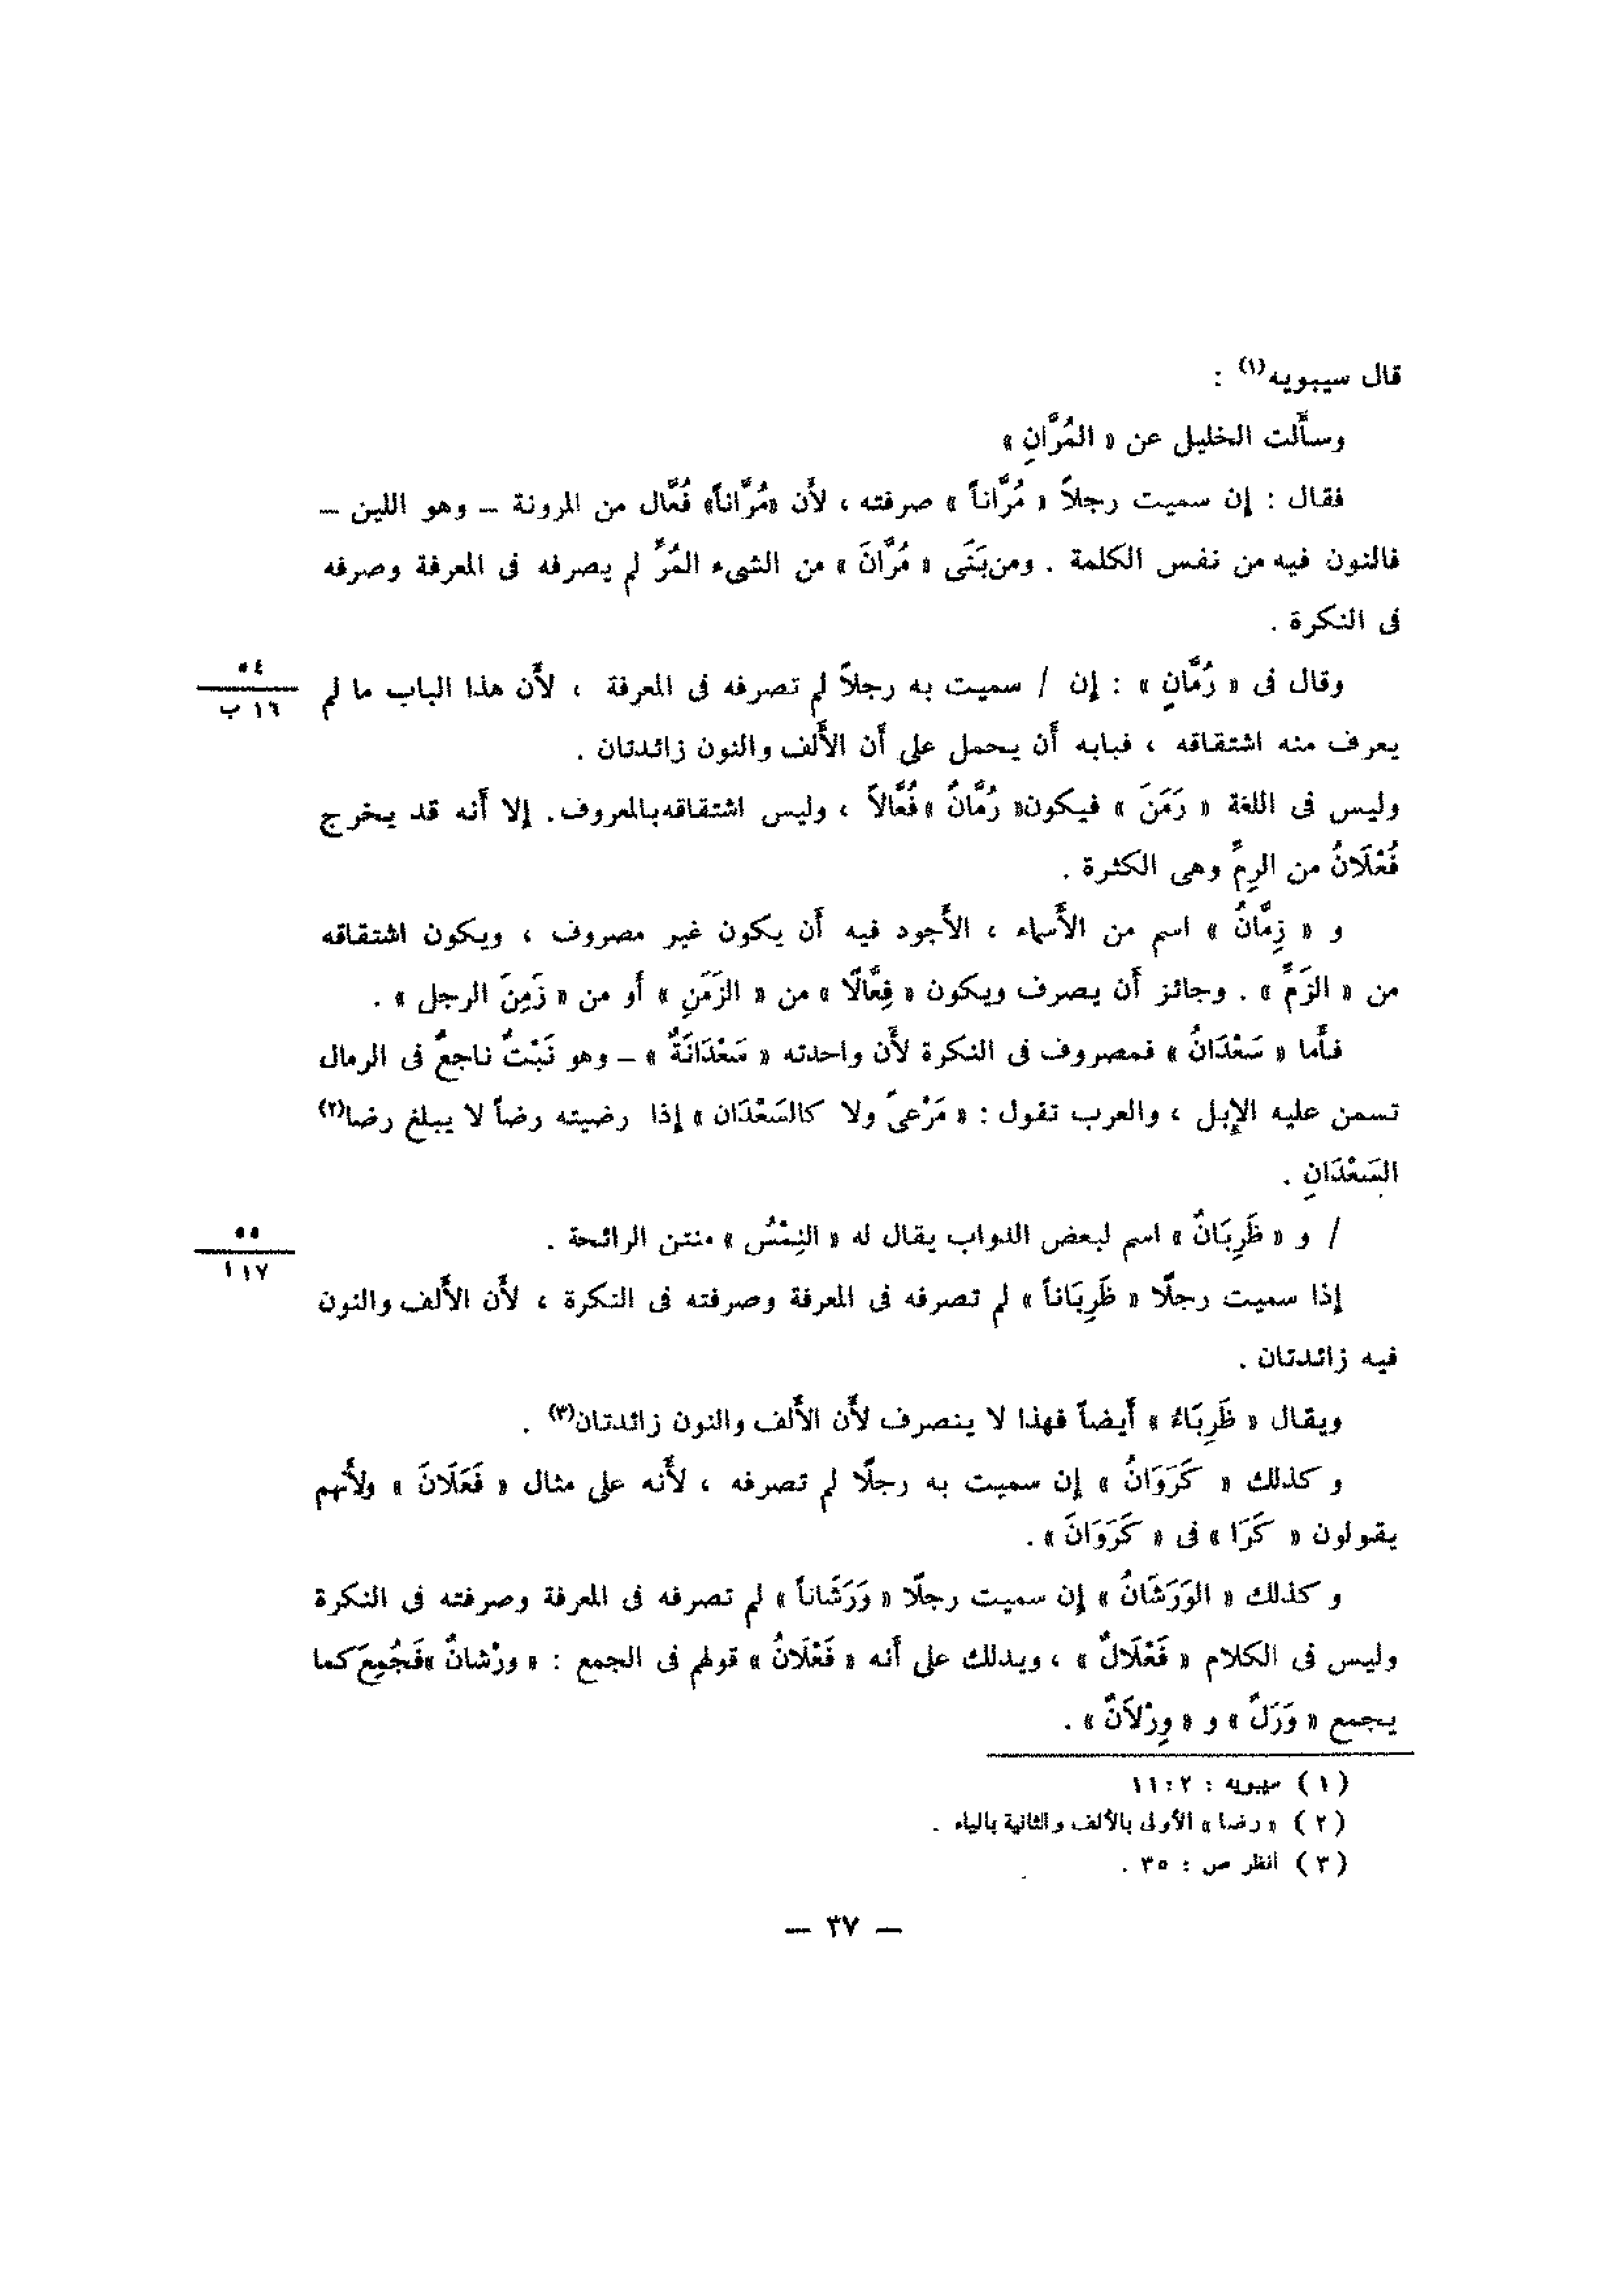 قال سيبويه(١) :
وسأَلت الخليل عن « المُرَّانِ »
فقال : إن سميت رجلاً « مُرَّاناً » صرفته ، لأَن «مُرَّاناً» فُعَّال من المرونة – وهو اللين –
فالنون فيه من نفس الكلمة . ومن بَنَى « مُرَّانَ » من الشىء المُرِّ لم يصرفه فى المعرفة وصرفه
فى النكرة .
وقال فى « رُمَّانٍ » : إن / سميت به رجلاً لم تصرفه فى المعرفة ، لأَن هذا الباب ما لم
٥٤
١٦ ب
يعرف منه اشتقاقه ، فبابه أَن يحمل على أَن الأَلف والنون زائدتان .
وليس فى اللغة « رَمَنَ » فيكون« رُمَّانٌ »فُعَّالاً ، وليس اشتقاقه بالمعروف. إلا أَنه قد يخرج
فُعْلَانُ من الرِمِّ وهى الكثرة .
و « زِمَّانُ » اسم من الأَسماء ، الأَجود فيه أَن يكون غير مصروف ، ويكون اشتقاقه
من « الزَمِّ » . وجائز أَن يصرف ويكون « فِعَّالًا » من « الزَمَنِ » أَو من « زَمِنَ الرجل » .
فأَما « سَعْدَانُ » فمصروف فى النكرة لأَن واحدته « سَعْدَانَةٌ » – وهو نَبْتٌ ناجعٌ فى الرمال
تسمن عليه الإبل ، والعرب تقول : « مَرْعىً ولا كالسَعْدَان » إذا رضيته رضاً لا يبلغ رضا(٢)
السَعْدَانِ .
/ و « ظَرِبَانٌ » اسم لبعض الدواب يقال له « النِمْسُ » منتن الرائحة .
٥٥
١٧ ا
إذا سميت رجلًا « ظَرِبَاناً » لم تصرفه فى المعرفة وصرفته فى النكرة ، لأَن الأَلف والنون
فيه زائدتان .
ويقال « ظَرِبَاءُ » أَيضاً فهذا لا ينصرف لأَن الأَلف والنون زائدتان(٣) .
وكذلك « كَرَوَانُ » إن سميت به رجلًا لم تصرفه ، لأَنه على مثال « فَعَلَانَ » ولأَنهم
يقولون « كَرَا » فى « كَرَوَانَ » .
وكذلك « الوَرَشَانُ » إن سميت رجلًا « وَرَشَاناً » لم تصرفه فى المعرفة وصرفته فى النكرة
وليس فى الكلام « فَعْلَالٌ » ، ويدلك على أَنه « فَعْلَانُ » قولهم فى الجمع : « ورْشانٌ »فَجُمِعَ كما
يجمع « وَرَلٌ » و « وِرْلَانٌ » .
(١) سيبويه : ٢ : ١١
(٢) « رضا » الأولى بالألف والثانية بالياء .
(٣) انظر ص : ٣٥ .
– ٣٧ –